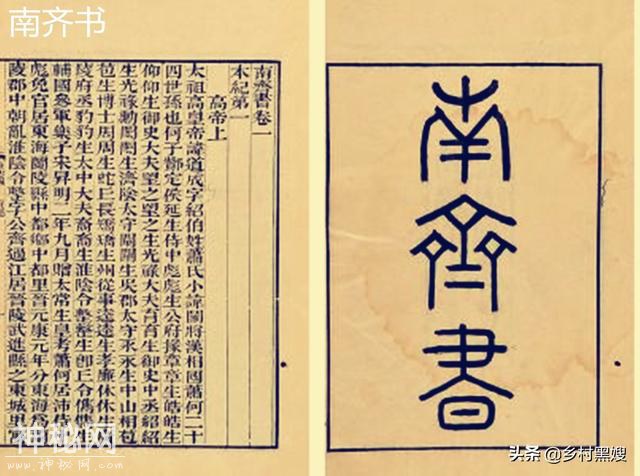 南齐书
南齊書卷一
本紀第一
高帝上
太祖高皇帝諱道成字紹伯姓蕭氏小諱鬭將漢相國蕭何二十
四世孫也何子酇定侯延生侍中彪彪生公府掾章章生皓皓生
仰仰生御史大夫望之望之生光祿大夫育育生御史中丞紹紹
生光祿勳閎閎生濟陰太守闡闡生吳郡太守永永生中山相苞
苞生博士周周生蛇丘長矯矯生州從事逵逵生孝廉休休生
陵府丞豹豹生太中大夫裔裔生淮陰令整整生即丘令儁儁生
輔國參軍樂子宋昇明二年九月贈太常生皇考蕭何居沛侍
彪免官居東海蘭陵縣中都鄉中都里晉元康元年分東海
陵郡中朝亂淮陰令整字公齊過江居晉陵武進縣之東城里
南齊書
神秘网
头条 @乡村黑嫂